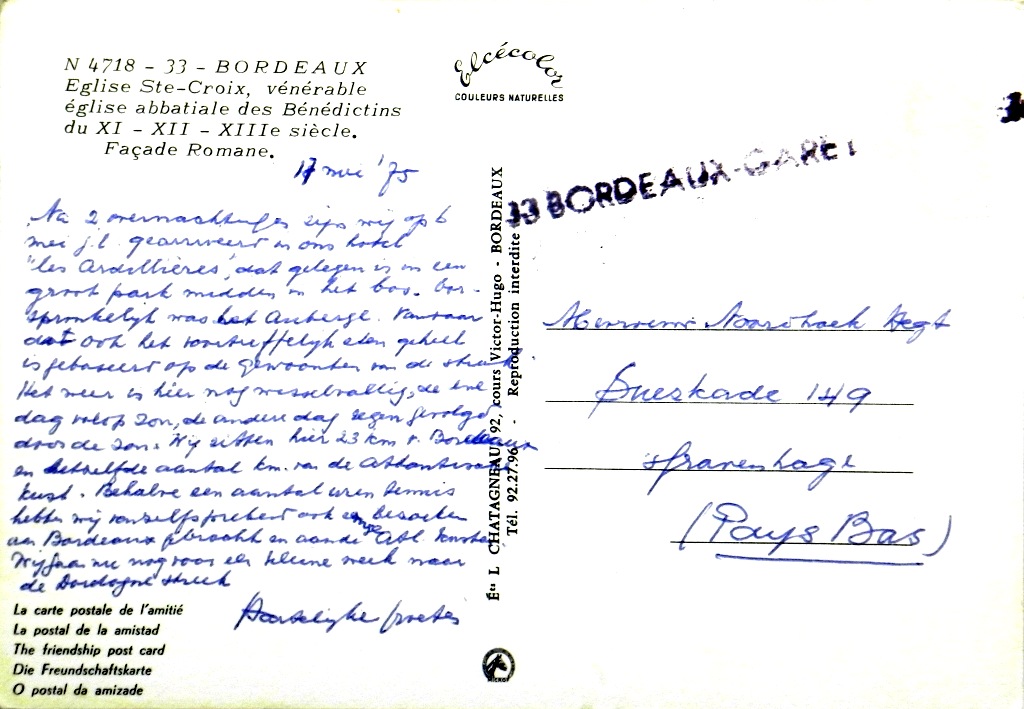 N 4718 - 33 - BORDEAUX
Eglise Ste-Croix, vénérable
église abbatiale des Bénédictins
du XI - XII - XIIIe siècle.
Façade Romane.
Elcécolor
COULEURS NATURELLES
17 mei '75
Na 2 overnachtingen zijn wij op 6
mei j.l. gearriveerd in ons hotel
"les Ardillières", dat gelegen is in een
groot park midden in het bos. Oor-
spronkelijk was het Auberge. Vandaar
dat ook het voortreffelijk eten geheel
is gebaseerd op de gewoonten van de streek
Het weer is hier nog wisselvallig, de ene
dag volop zon, de andere dag regen gevolgd
door de zon. Wij zitten hier 23 km v. Bordeaux
en hetzelfde aantal km. van de Atlantische
kust. Behalve een aantal uren tennis
hebben wij vanzelfsprekend ook enige bezoeken
aan Bordeaux gebracht en aan de Atl. kust
Wij gaan nu nog voor een kleine week naar
de Dordogne streek
Hartelijke groeten
La carte postale de l'amitié
La postal de la amistad
The friendship post card
Die Freundschaftskarte
O postal da amizade
Éts L. CHATAGNEAU, 92, cours Victor-Hugo - BORDEAUX
Tél. 92.27.96 - Reproduction interdite
33 BORDEAUX-GARE
Mevrouw Noordhoek Hegt
Suezkade 149
's Gravenhage
(Pays Bas)